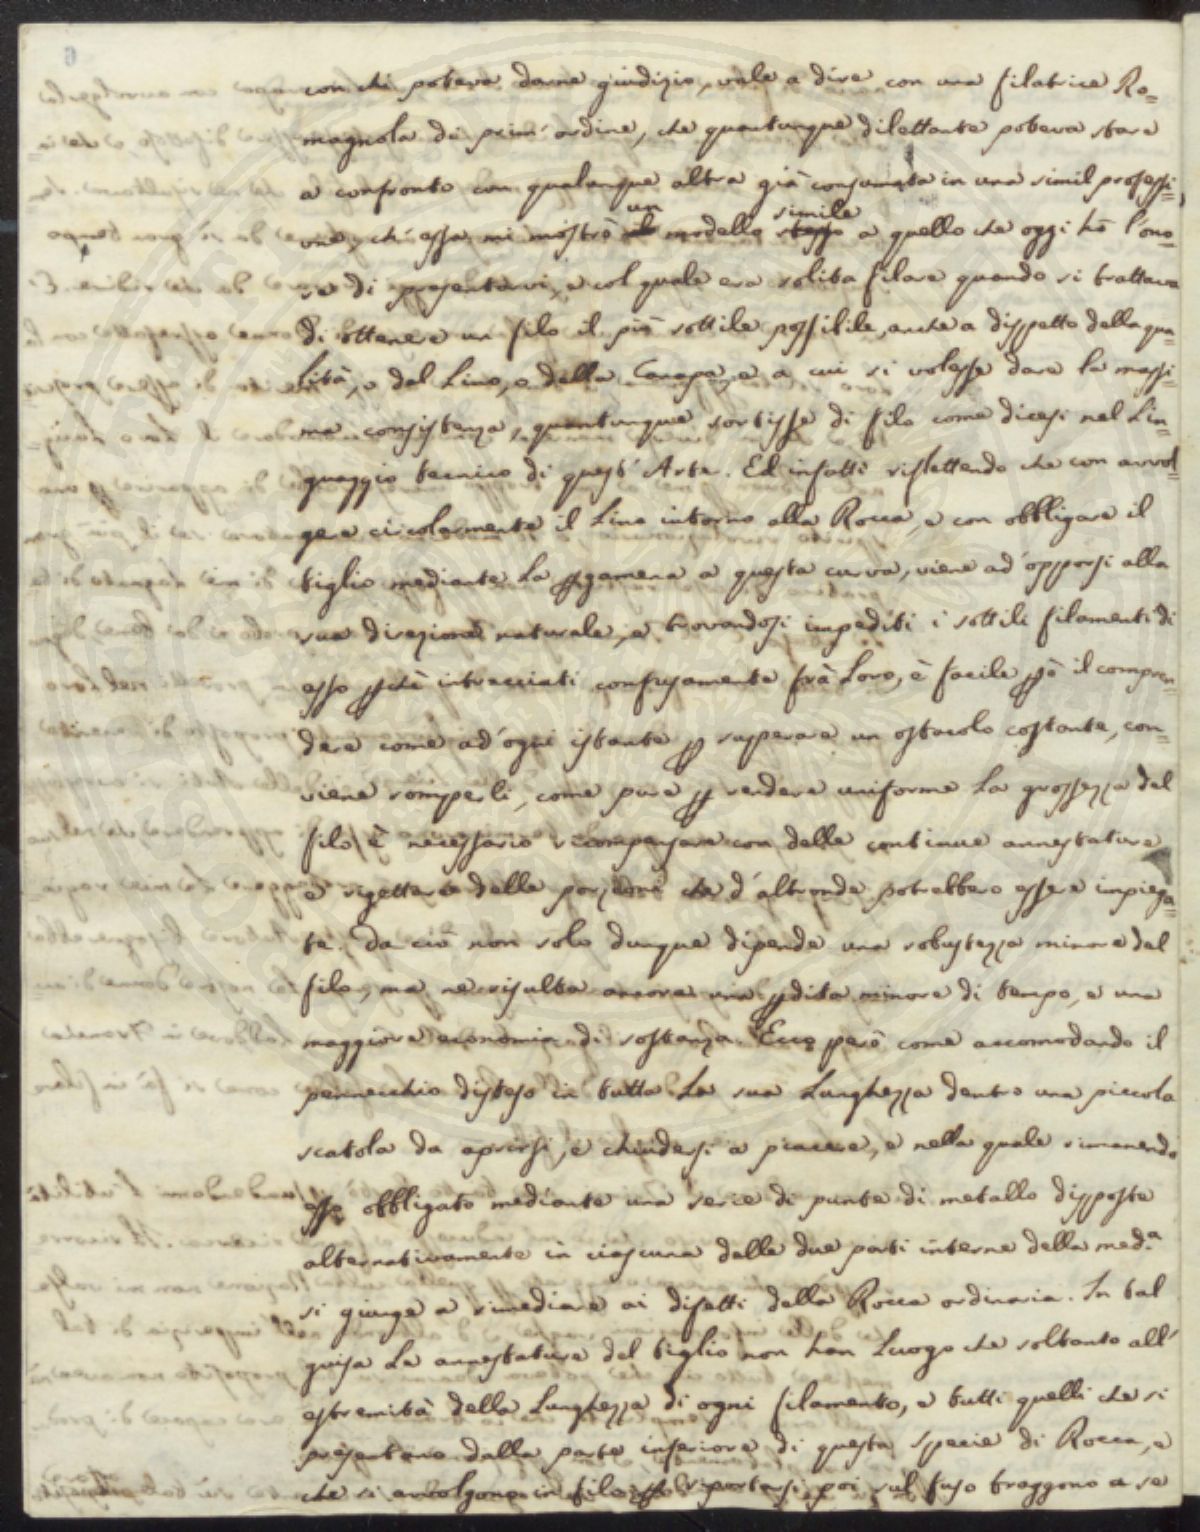 con chi poteva darne giudizio, vale a dire con una filatrice Ro=
magnola di prim'ordine, che quantunque dilettante poteva stare
a confronto con qualunque altra già consumata in una simil professi=
one; ch'essa mi mostrò un modello simile a quello che oggi hò l'ono=
re di presentarvi, e col quale era solita filare quando si trattava
di ottenere un filo il più sottile possibile, anche a dispetto della qua=
lità, o del Lino, o della Canapa, e a cui si volesse dare la massi=
ma consistenza, quantunque sortisse di filo come dicesi nel Lin=
guaggio tecnico di quest'Arte. Ed infatti riflettendo che con avvol=
gere circolarmente il Lino intorno alla Rocca, e con obbligare il
tiglio mediante la pergamena a questa curva, viene ad'opporsi alla
sua direzione naturale, e trovandosi impediti i sottili filamenti di
esso perchè intracciati confusamente frà Loro, è facile però il compren=
dere come ad'ogni istante per superare un ostacolo costante, con=
viene romperli, come pure per rendere uniforme la grossezza del
filo è necessario ricompensare con delle continue annestature
e rigettare delle porzioni che d'altronde potrebbero essere impiega=
te. Da ciò non solo dunque dipende una robustezza minore del
filo, ma ne risulta ancora una perdita minore di tempo, e una
maggiore economia di sostanza. Ecco però come accomodando il
pennecchio disteso in tutta la sua Lunghezza dentro una piccola
scatola da aprirsi, e chiudersi a piacere, e nella quale rimanendo
esso obbligato mediante una serie di punte di metallo disposte
alternativamente in ciascuna delle due parti interne della med.ª
si giunge a rimediare ai difetti della Rocca ordinaria. In tal
guisa le annestature del tiglio non han Luogo che soltanto all'
estremità della Lunghezza di ogni filamento, e tutti quelli che si
presentano dalla parte inferiore di questa specie di Rocca, e
che si avvolgono in filo per riportarsi poi sul fuso traggono a se